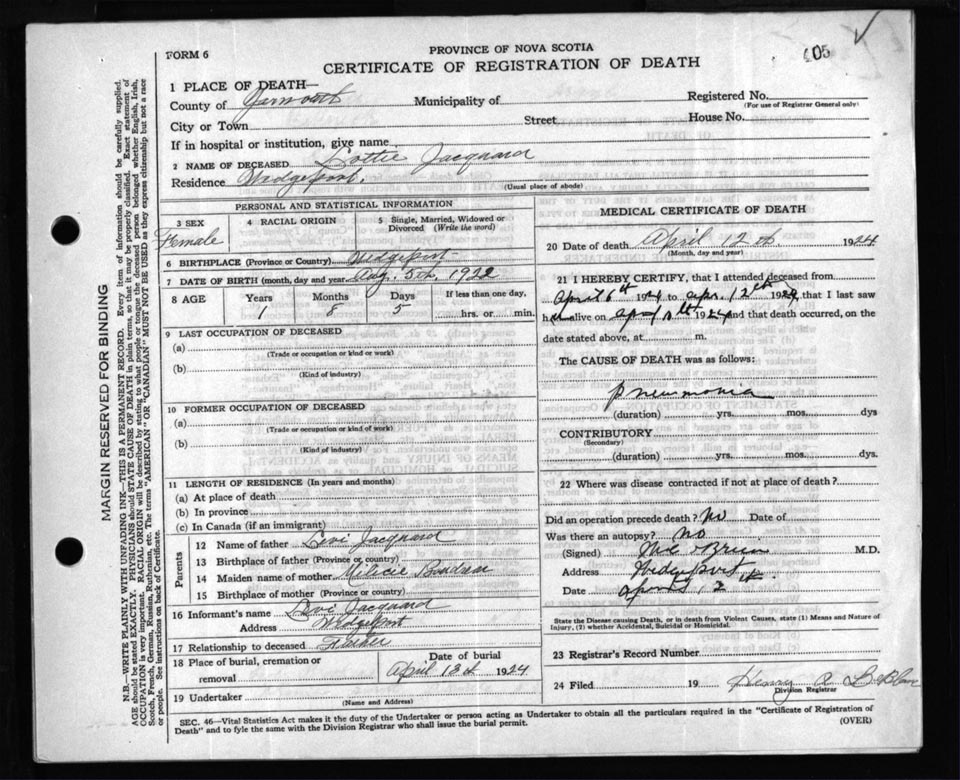 FORM 6
PROVINCE OF NOVA SCOTIA
CERTIFICATE OF REGISTRATION OF DEATH
405
1 PLACE OF DEATH—
County of Yarmouth Municipality of Registered No.
(For use of Registrar General only)
City or Town Street House No.
If in hospital or institution, give name
2 NAME OF DECEASED Lottie Jacquard
Residence Wedgeport.
(Usual place of abode)
PERSONAL AND STATISTICAL INFORMATION
3 SEX Female
4 RACIAL ORIGIN
5 Single, Married, Widowed or Divorced (Write the word)
6 BIRTHPLACE (Province or Country) Wedgeport
7 DATE OF BIRTH (month, day and year) Aug. 5th, 1922
8 AGE Years Months Days If less than one day,
1 8 5 hrs. or min.
9 LAST OCCUPATION OF DECEASED
(a)
(Trade or occupation or kind or work)
(b)
(Kind of industry)
10 FORMER OCCUPATION OF DECEASED
(a)
(Trade or occupation or kind of work)
(b)
(Kind of industry)
11 LENGTH OF RESIDENCE (In years and months)
(a) At place of death
(b) In province
(c) In Canada (if an immigrant)
Parents
12 Name of father Levi Jacquard
13 Birthplace of father (Province or country)
14 Maiden name of mother Boudreau
15 Birthplace of mother (Province or country)
16 Informant's name Levi Jacquard
Address Wedgeport
17 Relationship to deceased Father
18 Place of burial, cremation or removal
Date of burial
April 13th 1924
19 Undertaker
(Name and Address)
MEDICAL CERTIFICATE OF DEATH
20 Date of death April 12th 1924
(Month, day and year)
21 I HEREBY CERTIFY, that I attended deceased from
April 6th 1924 to Apr. 12th 1924, that I last saw
h alive on 1924 and that death occurred, on the
date stated above, at m.
The CAUSE OF DEATH was as follows:
Pneumonia
(duration) yrs. mos. dys
CONTRIBUTORY
(Secondary)
(duration) yrs. mos. dys.
22 Where was disease contracted if not at place of death?
Did an operation precede death? No Date of
Was there an autopsy? No
(Signed) O'Brien M.D.
Address Wedgeport
Date April 12th
State the Disease causing Death, or in death from Violent Causes, state (1) Means and Nature of
Injury, (2) whether Accidental, Suicidal or Homicidal.
23 Registrar's Record Number
24 Filed 19 Henry A LeBlanc
Division Registrar
SEC. 46—Vital Statistics Act makes it the duty of the Undertaker or person acting as Undertaker to obtain all the particulars required in the "Certificate of Registration of
Death" and to fyle the same with the Division Registrar who shall issue the burial permit.
(OVER)
MARGIN RESERVED FOR BINDING
N.B.—WRITE PLAINLY WITH UNFADING INK—THIS IS A PERMANENT RECORD. Every item of information should be carefully supplied.
AGE should be stated EXACTLY. PHYSICIANS should STATE CAUSE OF DEATH in plain terms, so that it may be properly classified. Exact statement of
OCCUPATION is very important. RACIAL ORIGIN will be described by stating to what people or tongue the deceased person belonged whether English, Irish,
Scotch, French, German, Russian, Ruthenian, etc. The terms "AMERICAN" OR "CANADIAN" MUST NOT BE USED as they express citizenship but not a race
or people. See instructions on back of Certificate.